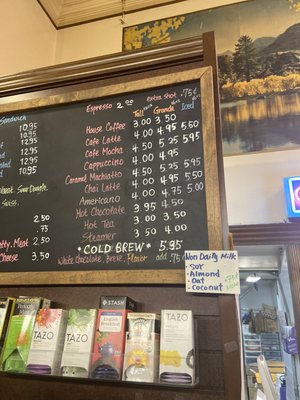 Sandwich
10.95
10.95
10.95
12.95
12.95
12.95
12.95
Swiss.
2.50
2.50
Meat 2.50
Cheese 3.50
Espresso 2.00 extra shot .75¢
Tall Grande Iced
House Coffee 3.00 3.50
Cafe Latte 4.00 4.95 5.50
Cafe Mocha 4.50 5.25 5.95
Cappuccino 4.00 4.95
Caramel Machiatto 4.50 5.25 5.95
Chai Latte 4.00 4.95 5.50
Americano 4.00 4.75 5.00
Hot Chocolate 3.95 4.50
Hot Tea 3.00 3.50
Steamer 3.50
*COLD BREW* 5.95
White Chocolate, Breve, Flavor add .75¢
Non Dairy Milk
- Soy
- Almond
- Oat
- Coconut
.75¢
STASH
ENGLISH BREAKFAST
TAZO
TAZO
TAZO